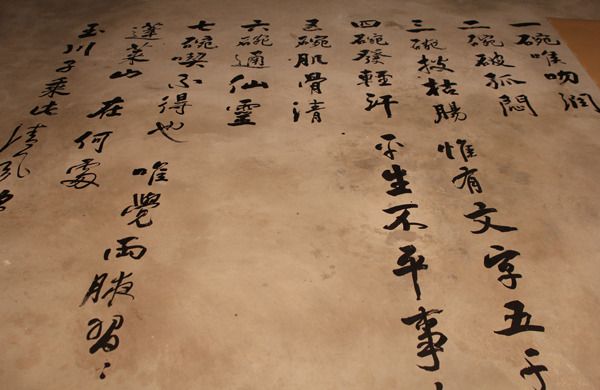 一碗喉吻潤
二碗破孤悶
三碗搜枯腸 惟有文字五千
四碗發輕汗 平生不平事
五碗肌骨清
六碗通仙靈
七碗喫不得也 唯覺兩腋習:
蓬萊山 在何處
玉川子乘此清風